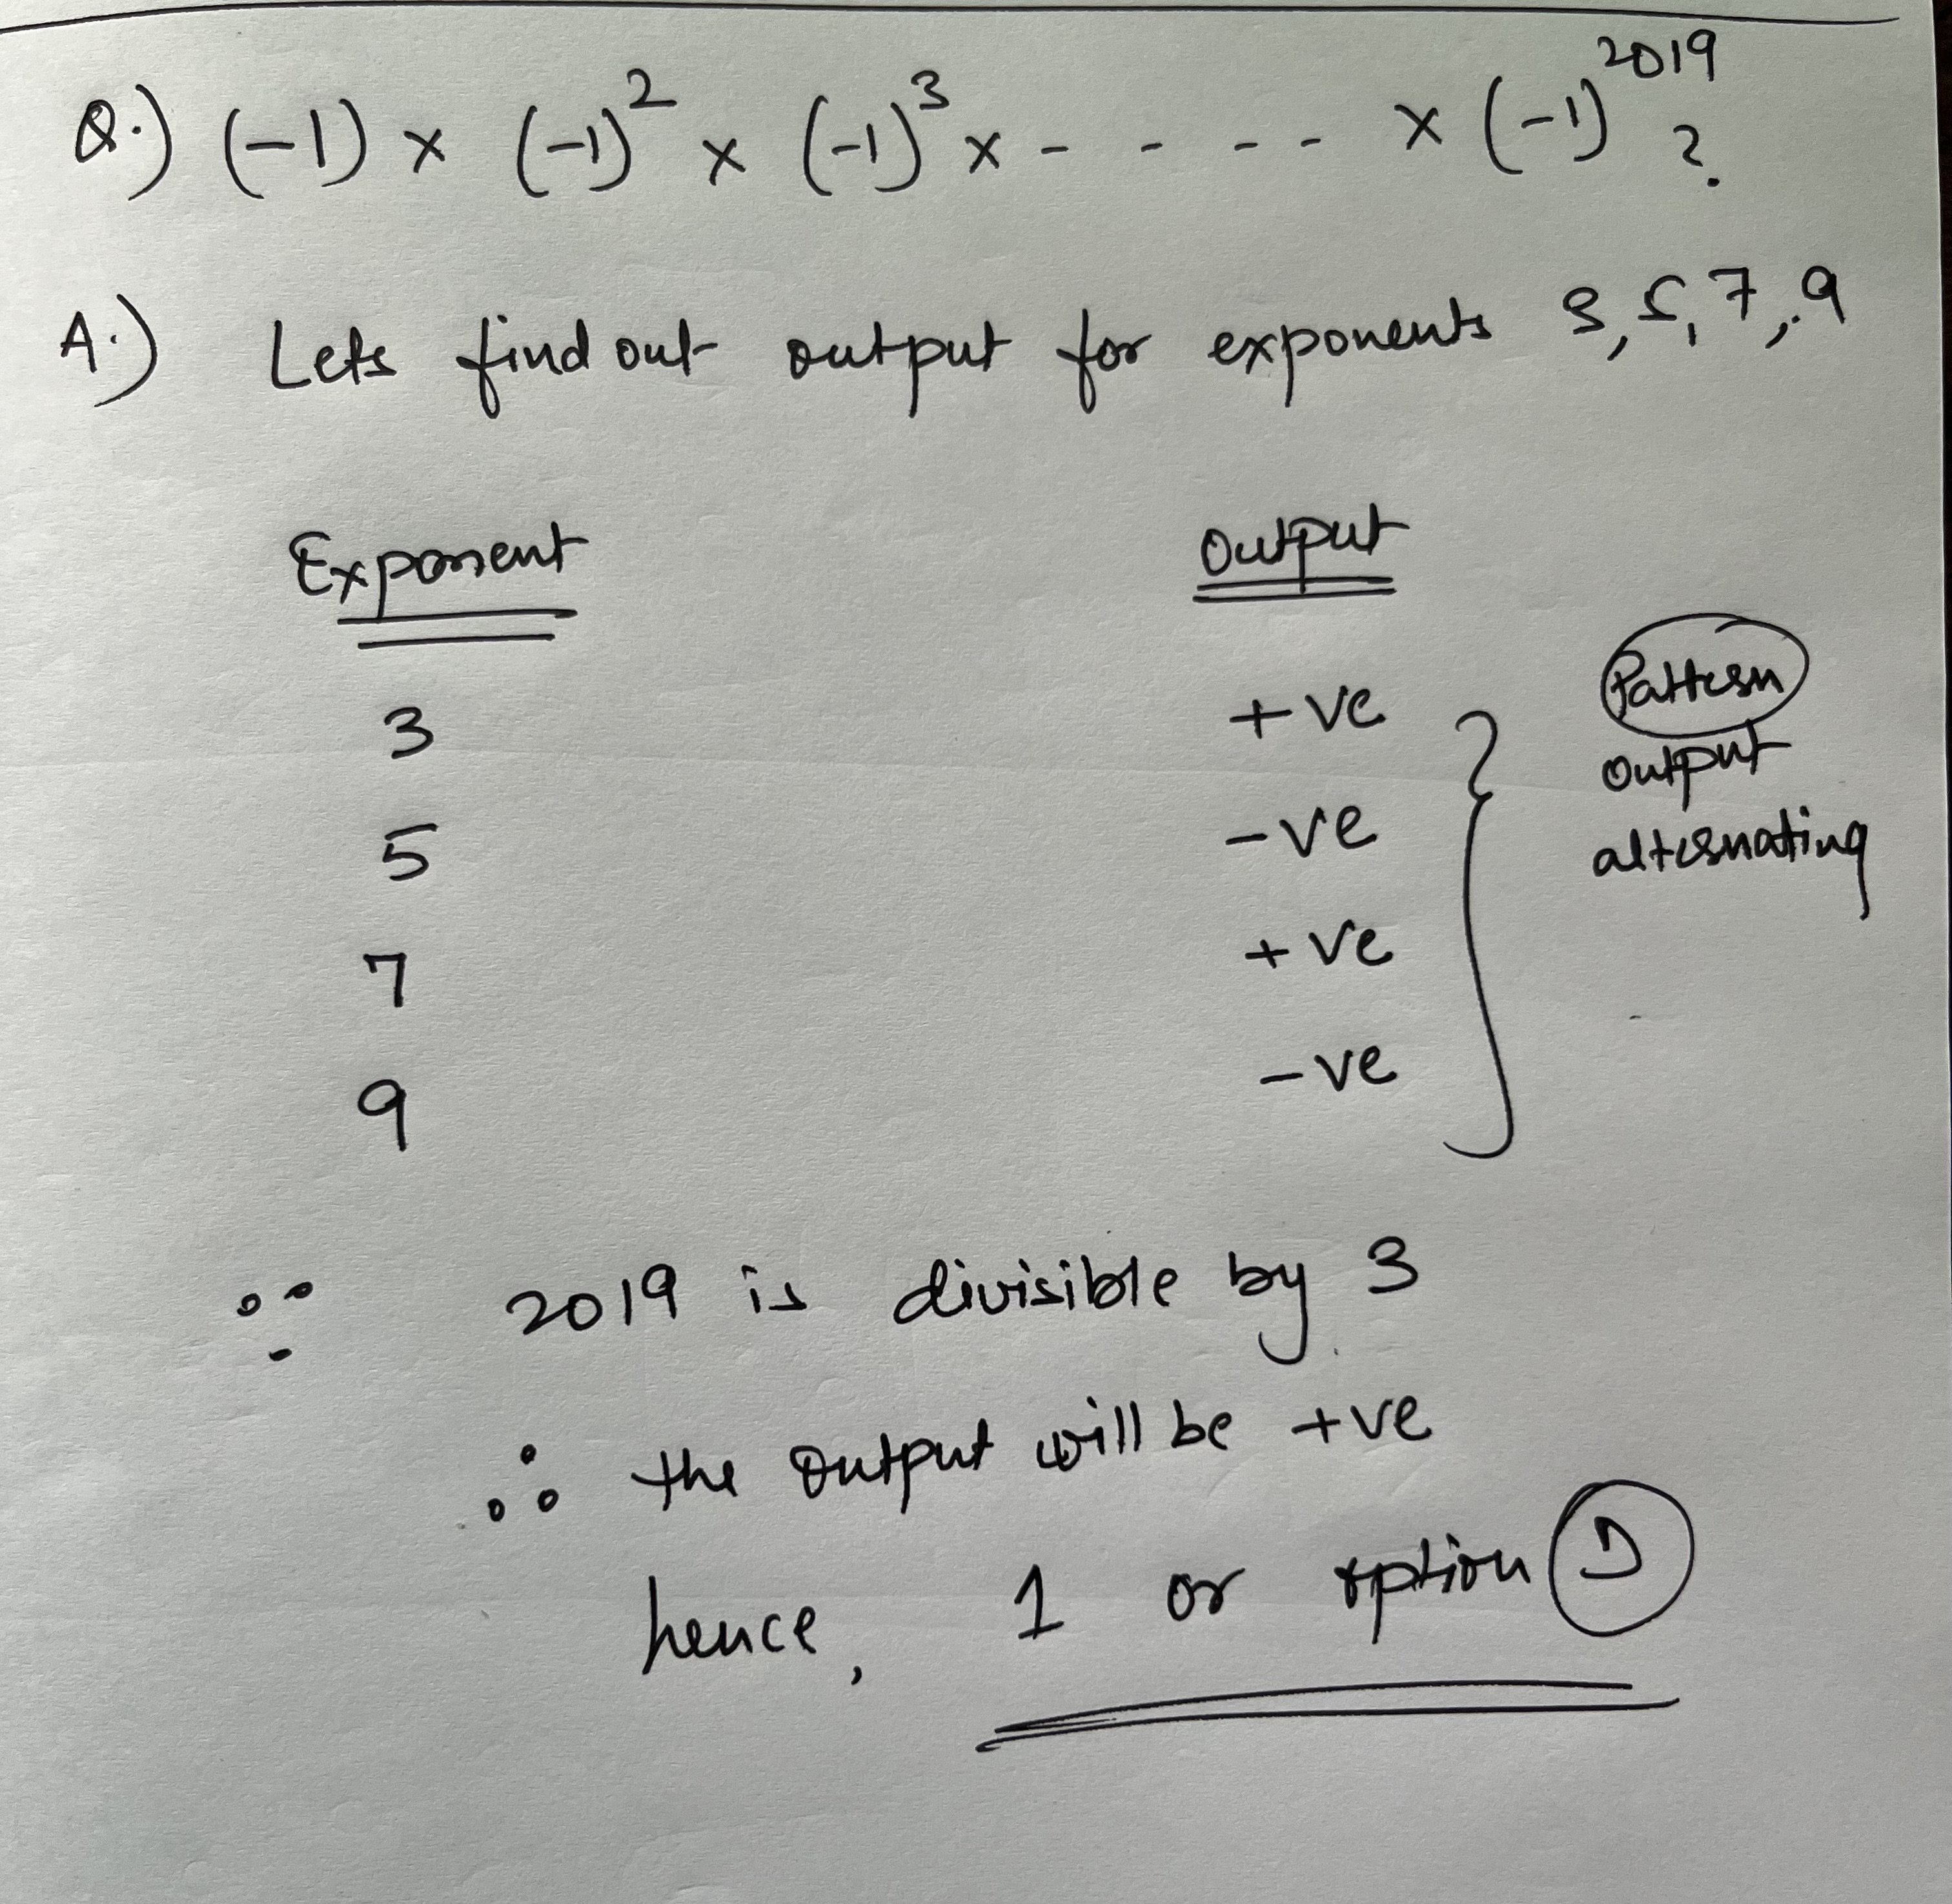 Q.) (-1) × (-1)² × (-1)³ × - - - - × (-1)²⁰¹⁹ ?
A.) Lets find out output for exponents 3, 5, 7, 9
Exponent Output
3 +ve
5 -ve
7 +ve
9 -ve
Pattern
output
alternating
∵ 2019 is divisible by 3
∴ the output will be +ve
hence, 1 or option D